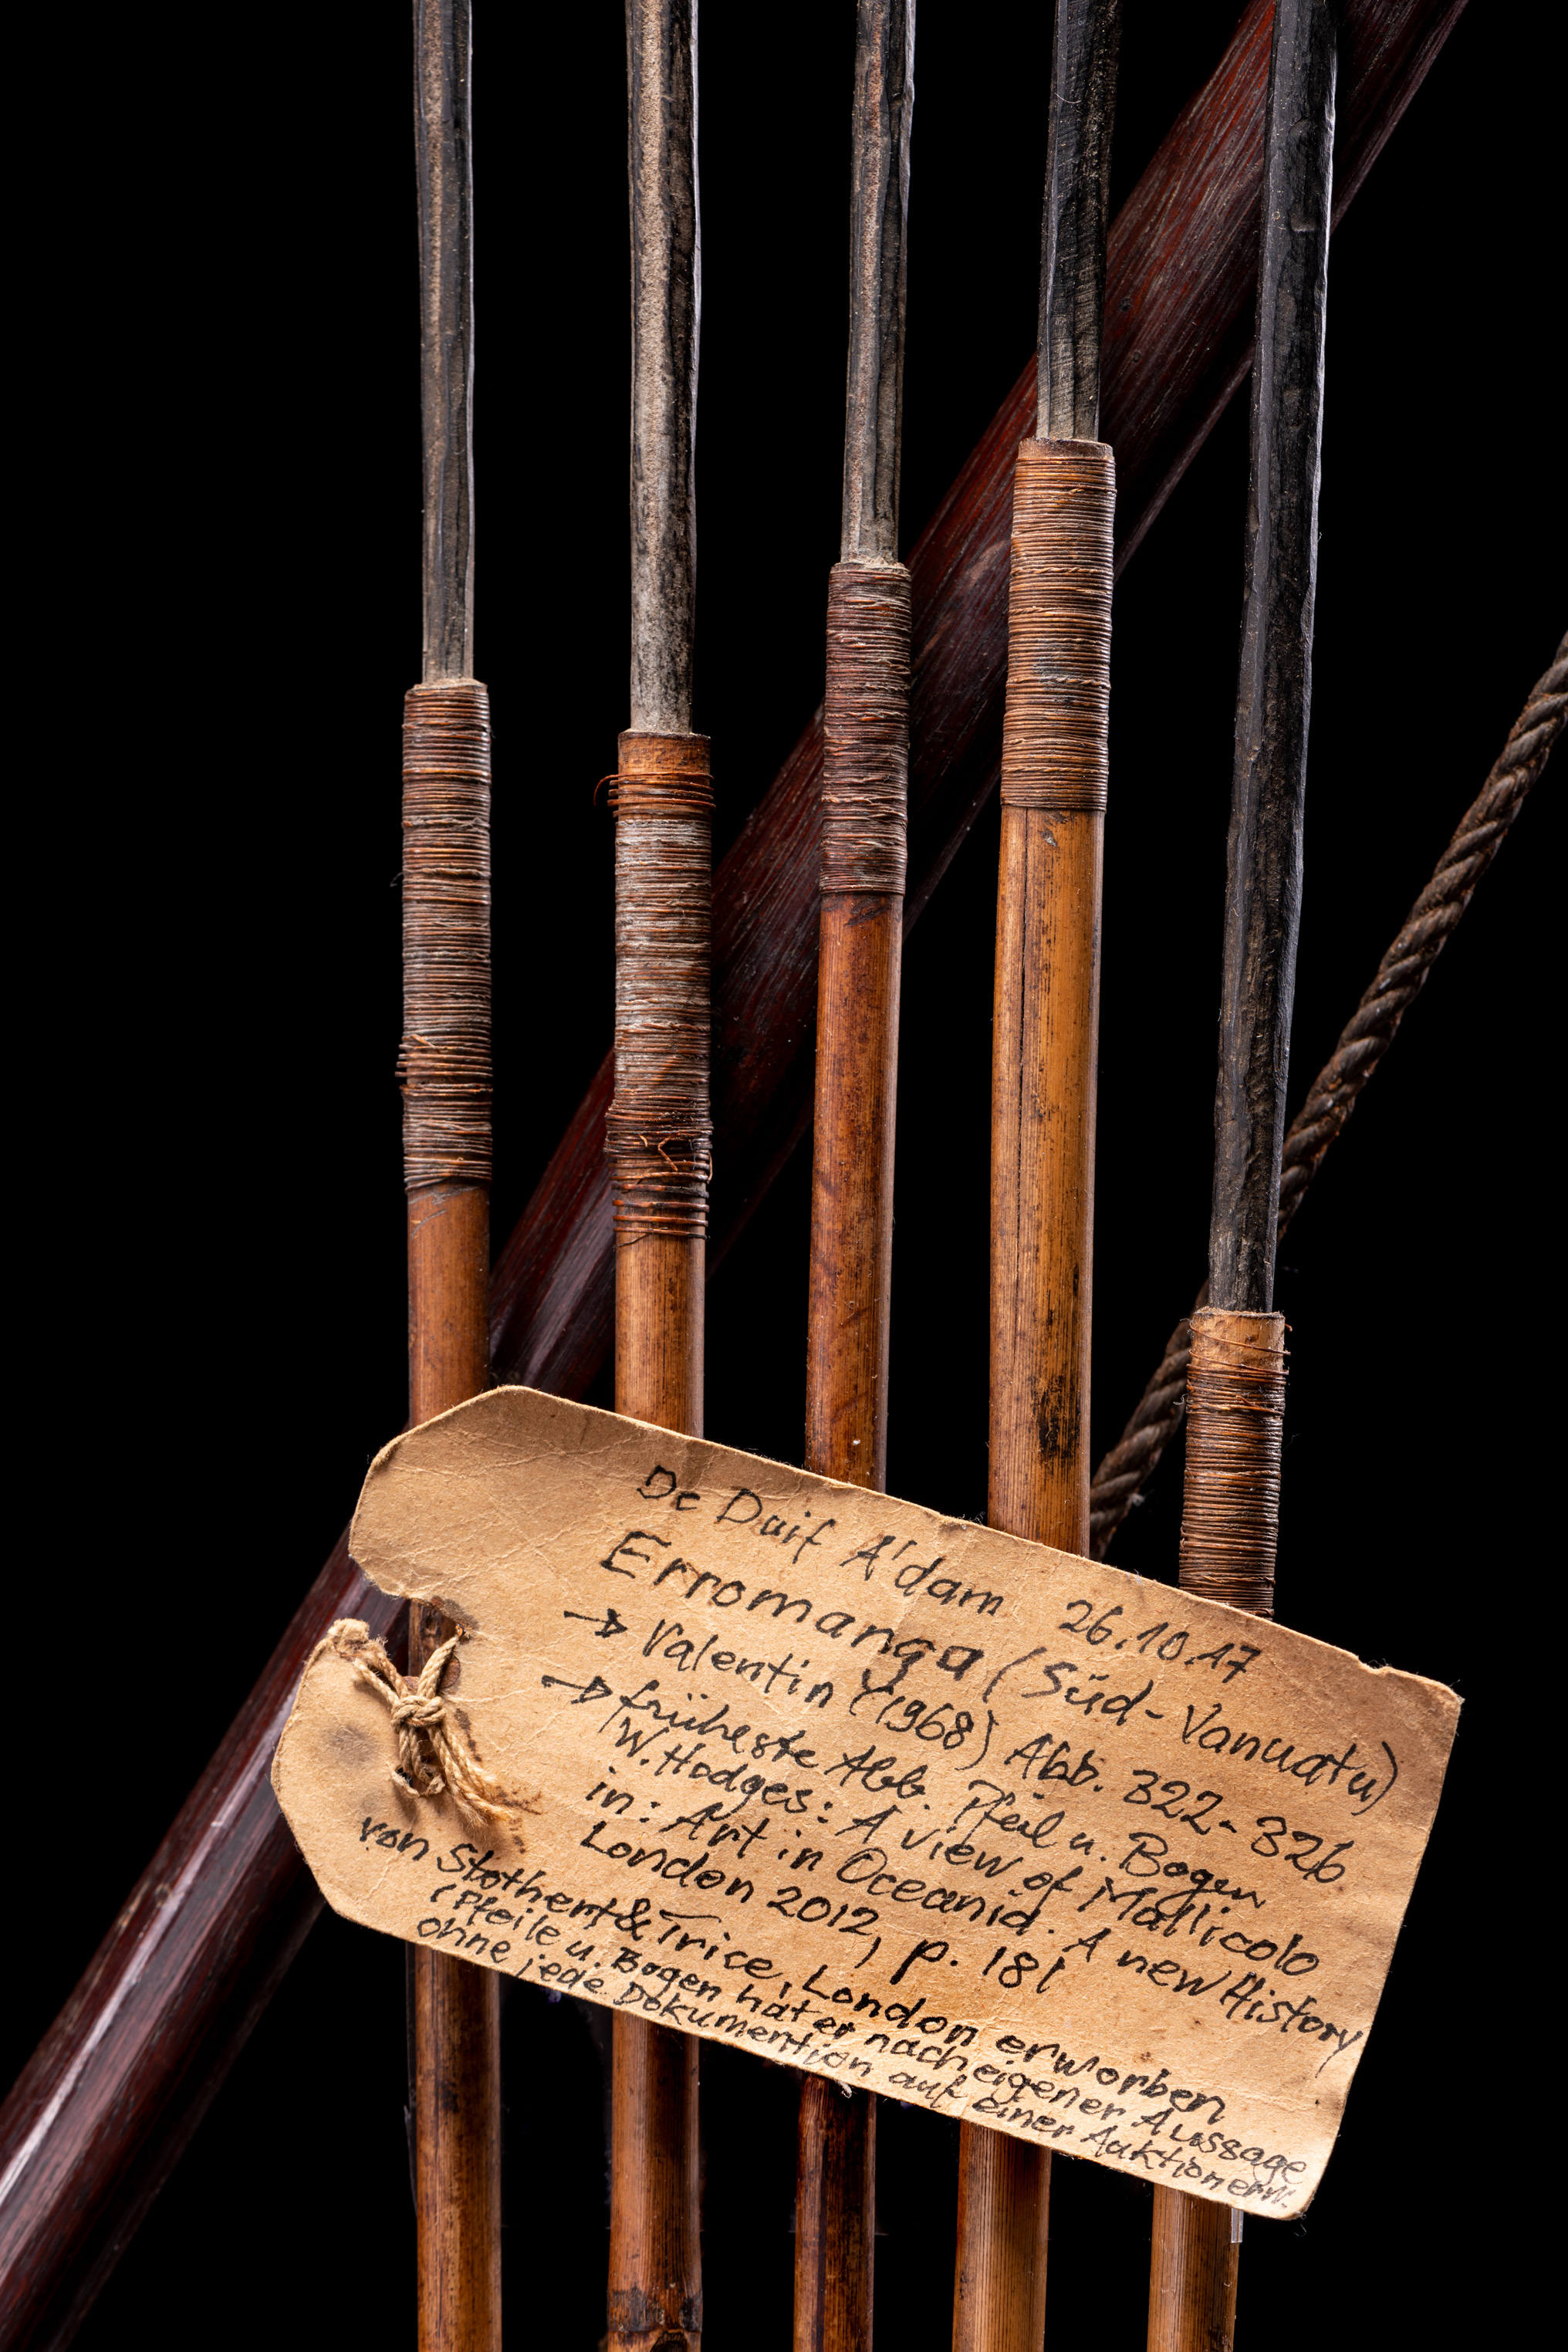 De Duif A'dam 26.10.17
Erromanga (Süd-Vanuatu)
→ Valentin (1968) Abb. 322-326
→ früheste Abb. Pfeil u. Bogen
W. Hodges: A view of Mallicolo
in: Art in Oceanid. A new History
London 2012, p. 181
von Stothert & Trice, London erworben
(Pfeile u. Bogen hat er nach eigener Aussage
ohne jede Dokumention auf einer Auktion erw.